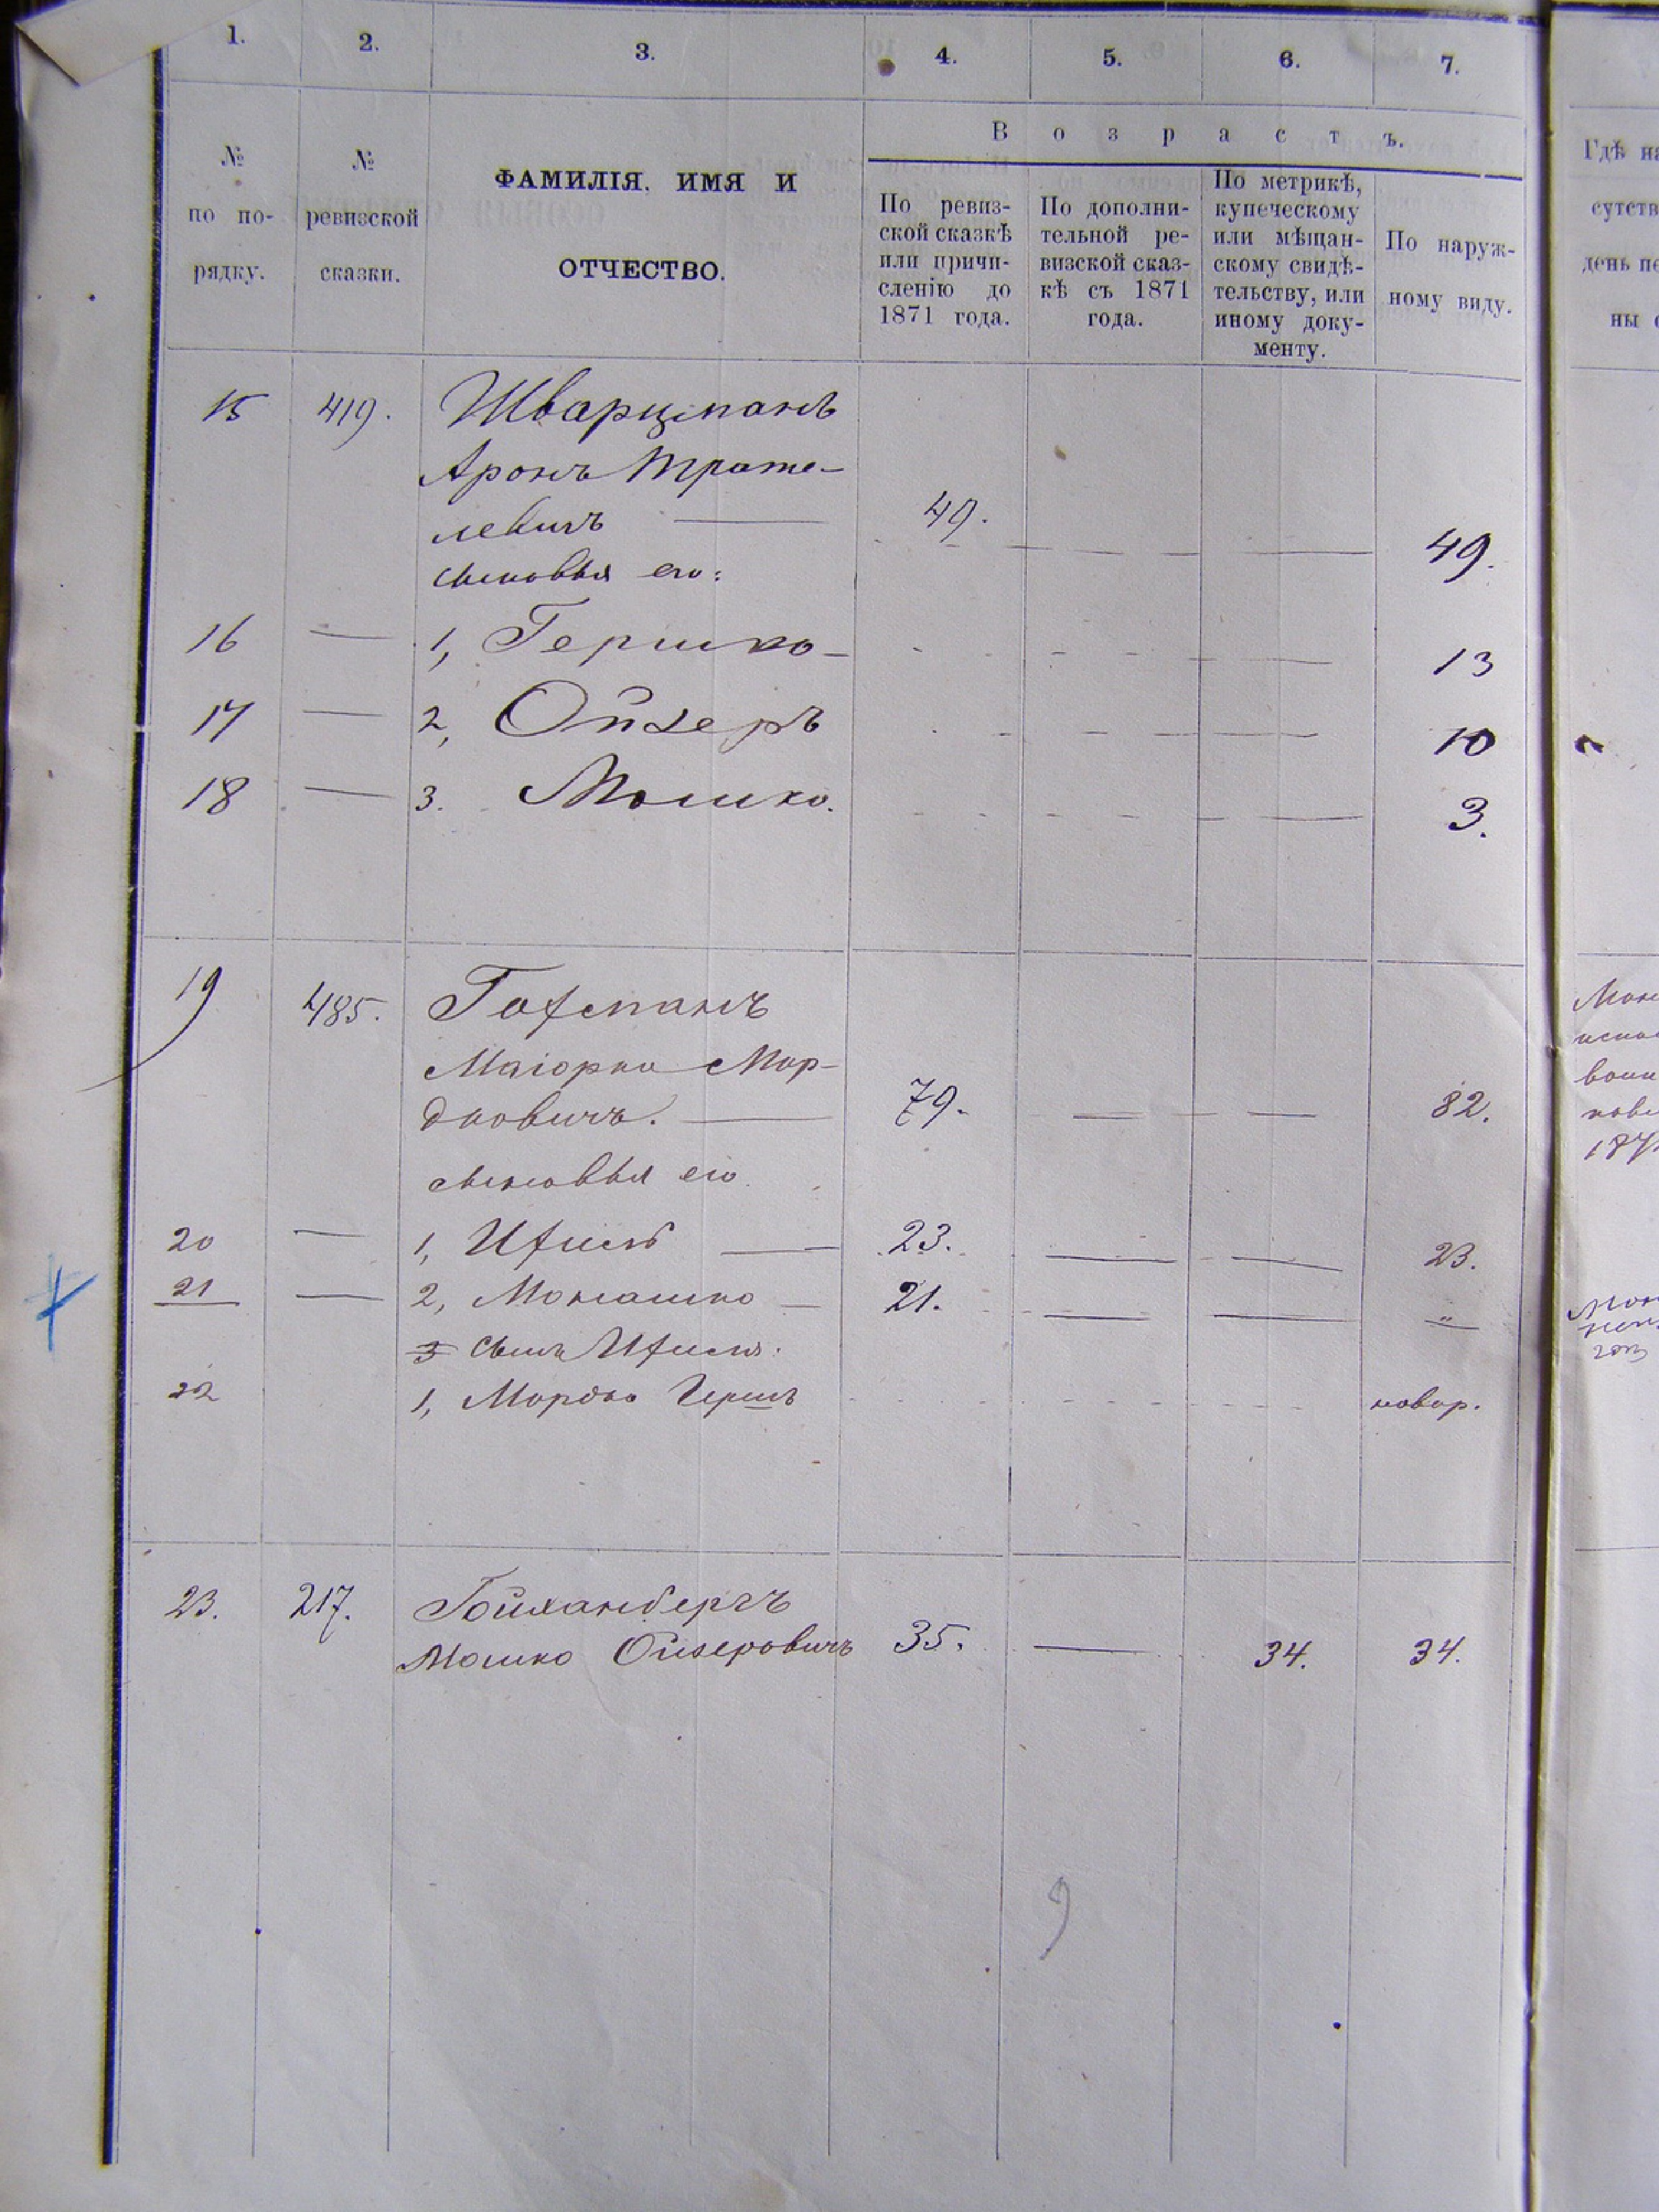 1. 2. 3. 4. 5. 6. 7.
Возрастъ.
№ по по-рядку.
№ ревизской сказки.
ФАМИЛІЯ. ИМЯ И
ОТЧЕСТВО.
По ревиз-
ской сказкѣ
или причи-
сленію до
1871 года.
По дополни-
тельной ре-
визской сказ-
кѣ съ 1871
года.
По метрикѣ,
купеческому
или мѣщан-
скому свидѣ-
тельству, или
иному доку-
менту.
По наруж-
ному виду.
Гдѣ на
сутств
день пе
ны
15 419. Шварцманъ
Аронъ
левичъ — 49. — — 49.
сыновья его:
16 — 1, Гершко — - - — 13
17 — 2, Ойзеръ - - — 10
18 — 3. Мошко. - - — 3.
19 485. Гофманъ
Маіорко Мор-
дковичъ. — 79. — — 82.
сыновья его
20 — 1, Ифиль — 23. — — 23.
21 — 2, — 21. — — "
3 сынъ Ифиля:
22 1, Мордко Гершъ новор.
23. 217.
Мошко Ойзеровичъ 35. — 34. 34.
187
9